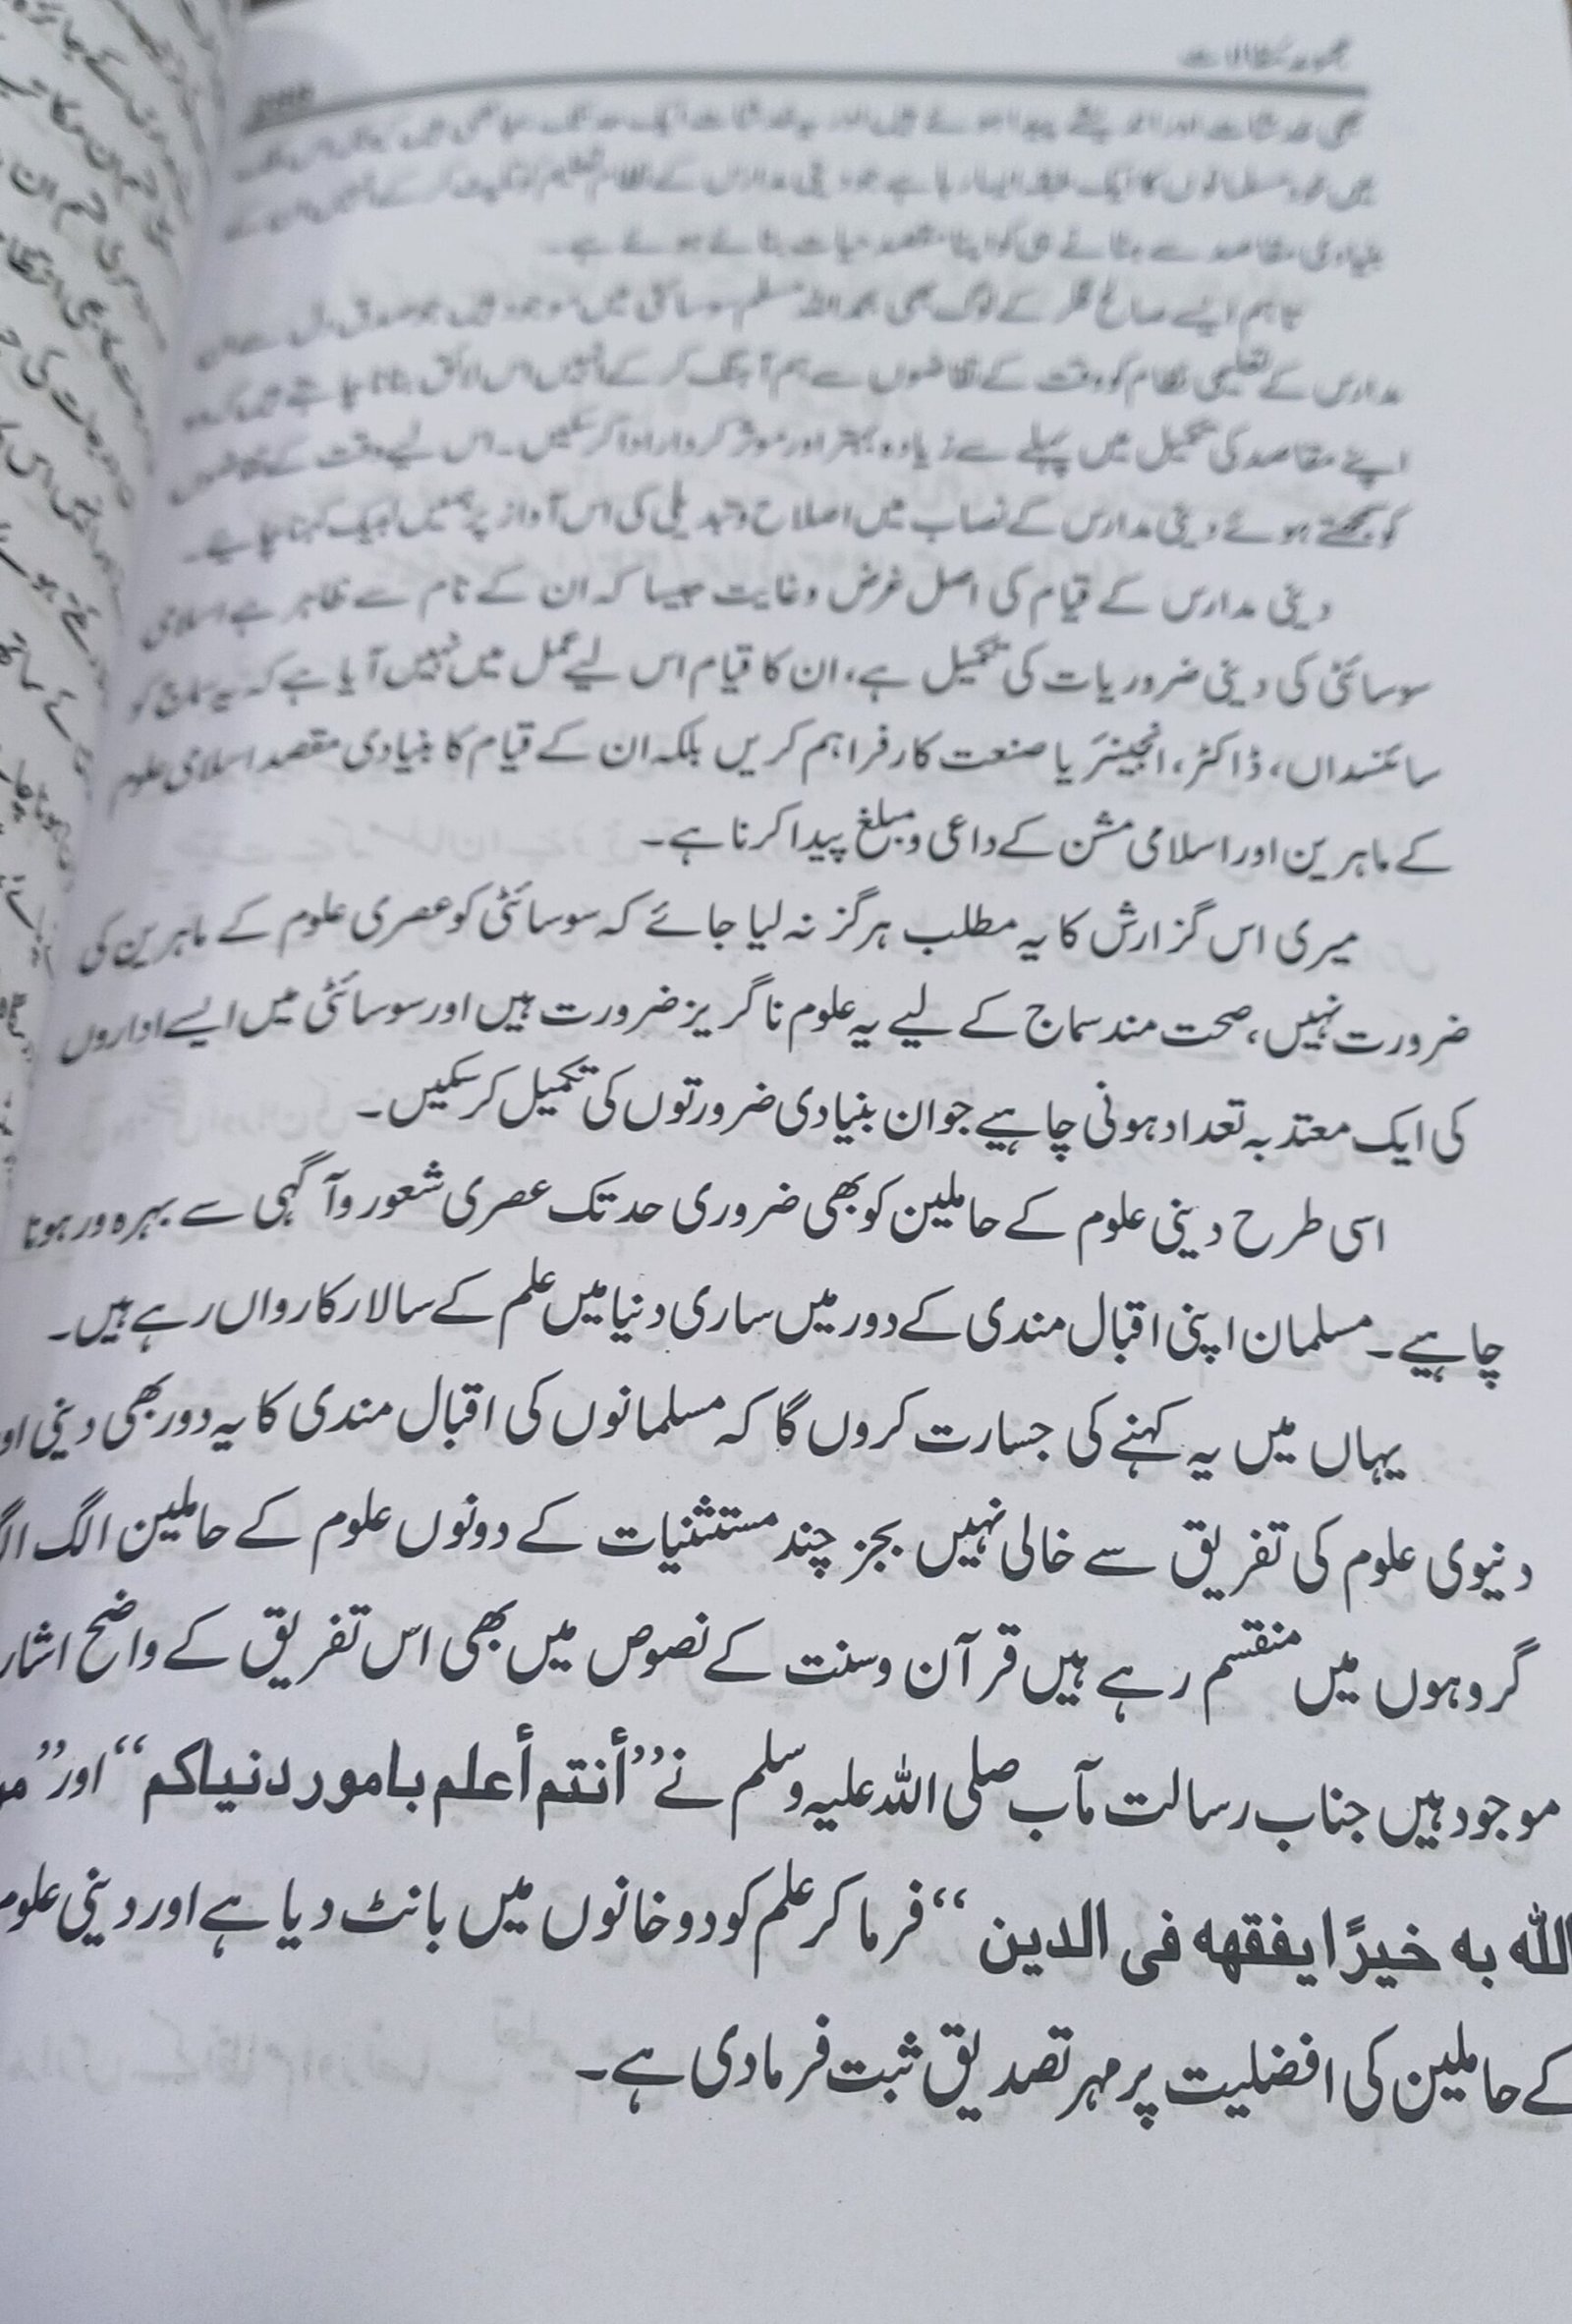 مجموعہ مقالات
بھی خدشات اور اندیشے پیدا ہوتے ہیں اور یہ خدشات ایک حد تک
میں خود مسلمانوں کا ایک طبقہ ایسا رہا ہے جو دینی مدارس کے نظام تعلیم کو
بنیادی مقاصد سے ہٹانے ہی کو اپنا مقصد حیات بنائے ہوئے ہے۔
تاہم ایسے صالح فکر کے لوگ بھی بحمد اللہ مسلم سوسائٹی میں موجود ہیں جو صدق دل سے ان
مدارس کے تعلیمی نظام کو وقت کے تقاضوں سے ہم آہنگ کر کے انہیں اس لائق بنانا چاہتے ہیں کہ وہ
اپنے مقاصد کی تکمیل میں پہلے سے زیادہ بہتر اور موثر کردار ادا کر سکیں۔ اس لیے وقت کے تقاضوں
کو سمجھتے ہوئے دینی مدارس کے نصاب میں اصلاح و تبدیلی کی اس آواز پر ہمیں لبیک کہنا چاہیے۔
دینی مدارس کے قیام کی اصل غرض و غایت جیسا کہ ان کے نام سے ظاہر ہے اسلامی
سوسائٹی کی دینی ضروریات کی تکمیل ہے، ان کا قیام اس لیے عمل میں نہیں آیا ہے کہ یہ سماج کو
سائنسداں، ڈاکٹر، انجینئر یا صنعت کار فراہم کریں بلکہ ان کے قیام کا بنیادی مقصد اسلامی علوم
کے ماہرین اور اسلامی مشن کے داعی و مبلغ پیدا کرنا ہے۔
میری اس گزارش کا یہ مطلب ہرگز نہ لیا جائے کہ سوسائٹی کو عصری علوم کے ماہرین کی
ضرورت نہیں، صحت مند سماج کے لیے یہ علوم ناگریز ضرورت ہیں اور سوسائٹی میں ایسے اداروں
کی ایک معتد بہ تعداد ہونی چاہیے جو ان بنیادی ضرورتوں کی تکمیل کر سکیں۔
اسی طرح دینی علوم کے حاملین کو بھی ضروری حد تک عصری شعور و آگہی سے بہرہ ور ہونا
چاہیے۔ مسلمان اپنی اقبال مندی کے دور میں ساری دنیا میں علم کے سالار کارواں رہے ہیں۔
یہاں میں یہ کہنے کی جسارت کروں گا کہ مسلمانوں کی اقبال مندی کا یہ دور بھی دینی او
دنیوی علوم کی تفریق سے خالی نہیں بجز چند مستثنیات کے دونوں علوم کے حاملین الگ ا
گروہوں میں منقسم رہے ہیں قرآن و سنت کے نصوص میں بھی اس تفریق کے واضح اشار
موجود ہیں جناب رسالت مآب صلی اللہ علیہ وسلم نے ”أنتم أعلم بامور دنیاکم“ اور ”م
اللہ به خیرًا یفقهه فی الدین“ فرما کر علم کو دو خانوں میں بانٹ دیا ہے اور دینی علوم
کے حاملین کی افضلیت پر مہر تصدیق ثبت فرما دی ہے۔